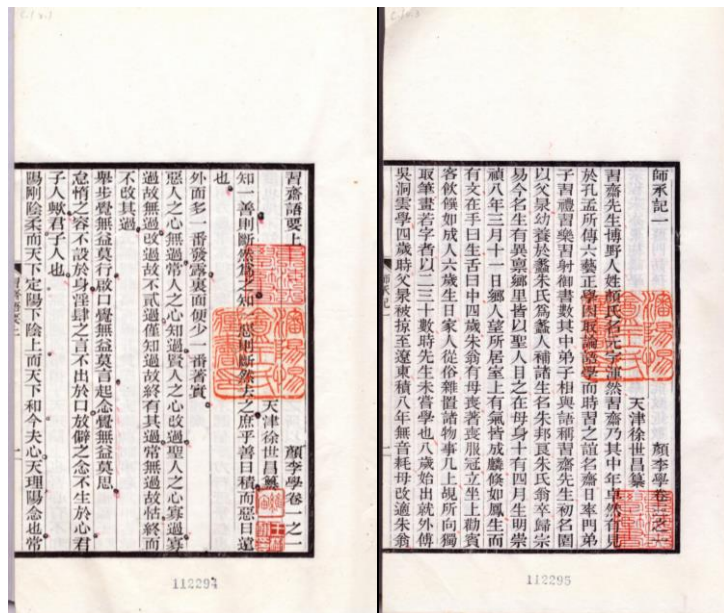 習齋語要上
顏李學卷一之一
天津徐世昌纂
知一善則斷然爲之知一惡則斷然去之庶乎善日積而惡日遠
也
外面多一番發露裏面便少一番著實
惡人之心無過常人之心知過賢人之心改過聖人之心寡過寡
過故無過改過故不貳過僅知過故終有其過常無過故怙終而
不改其過
舉步覺無益莫行啟口覺無益莫言起念覺無益莫思
怠惰之容不設於身淫肆之言不出於口放僻之念不生於心君
子人歟君子人也
陽剛陰柔而天下定陽下陰上而天下和今夫心天理陽念也常
112294
師承記一
顏李學卷
天津徐世昌纂
習齋先生博野人姓顏氏名元字渾然習齋乃其中年卓然有見
於孔孟所傳六藝正學因取論語學而時習之誼名齋日率門弟
子習禮習樂習射御書數其中弟子相與語稱習齋先生初名園
以父㫤幼養於蠡朱氏爲蠡人補諸生名朱邦良朱氏翁卒歸宗
易今名生有異稟鄉里皆以聖人目之在母身十有四月生明崇
禎八年三月十一日鄉人望所居室上有氣皆成麟倏如鳳生而
有文在手曰生舌曰中四歲朱翁有母喪著喪服冠立坐上勸賓
客飲饌如成人六歲生日家人從俗雜置諸物事几上覘所向獨
取筆畫若字者以二三十數時先生未嘗學也八歲始出就外傅
吳洞雲學四歲時父㫤被掠至遼東積八年無音耗母改適朱翁
師承記一
112295